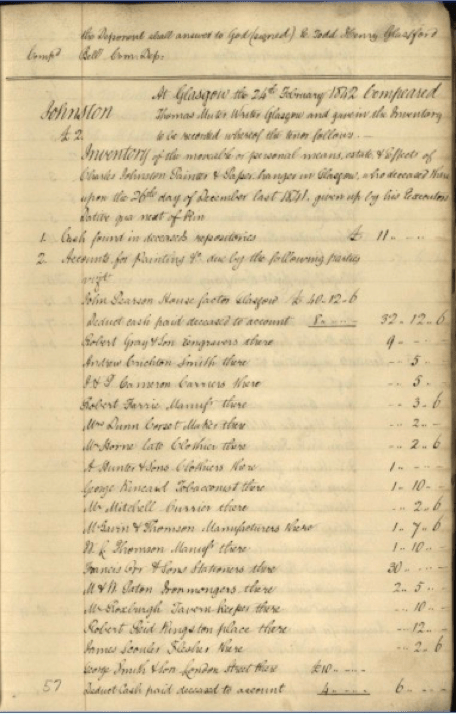 the Deponent shall answer to God (signed) C. Todd, Henry Glassford
Comp'd Bell Com: Dep:
At Glasgow the 24th February 1842 Compeared
Johnston Thomas Muter Writer Glasgow and gave in the Inventory
to be recorded whereof the tenor follows. —
Inventory of the moveable or personal means, estate & effects of
Charles Johnston Painter & Paper hanger in Glasgow, who deceased there
upon the 26th day of December last 1841, given up by his Executors
Dative qua next of Kin
1. Cash found in deceased's repositories £ 11 .. ..
2. Accounts for Painting &c. due by the following parties
vizt
John Pearson House factor Glasgow £ 40 .. 12 .. 6
Deduct cash paid deceased to account 8 .. .. 32 .. 12 .. 6
Robert Gray & Son Engravers there 9 .. ..
Andrew Crichton Smith there .. 5 ..
Cameron Carriers there .. 5 ..
Robert Farrie Manufr there .. 3 .. 6
Mrs Dunn Corset Maker there .. 2 ..
Mr Horne late Clothier there .. 2 .. 6
A Hunter & Sons Clothiers there 1 .. ..
George Kincaid Tobacconist there 1 .. 10 ..
Mr Mitchell Currier there .. 2 .. 6
& Thomson Manufacturers there 1 .. 7 .. 6
Thomson Manufr there 1 .. 10 ..
Francis Orr & Sons Stationers there 30 .. ..
M & W Paton Ironmongers there 2 .. 5 ..
Mr Roxburgh Tavern Keeper there .. 10 ..
Robert Reid Kingston place there .. 12 ..
James Scouler Flesher there .. 2 .. 6
George Smith & Son London Street there £10 .. ..
57 Deduct Cash paid deceased to account 4 .. .. 6 .. ..